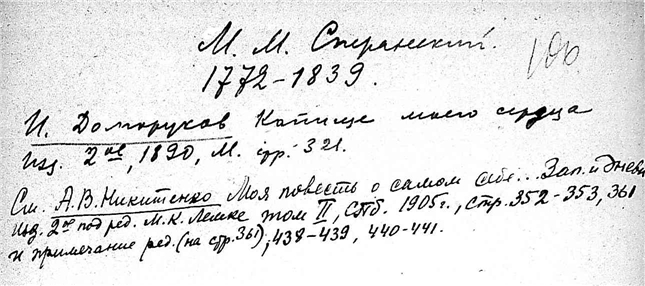 М. М. Сперанский.
1772–1839.
106
И. Долгоруков Капище моего сердца
изд. 2ое, 1890, М. стр. 321.
См. А.В. Никитенко Моя повесть о самом себе... Зап. и Дневн
изд. 2ое под ред. М.К. Лемке том II, СПб. 1905 г., стр. 352–353, 361
и примечание ред. (на стр. 361), 438–439, 440–441.